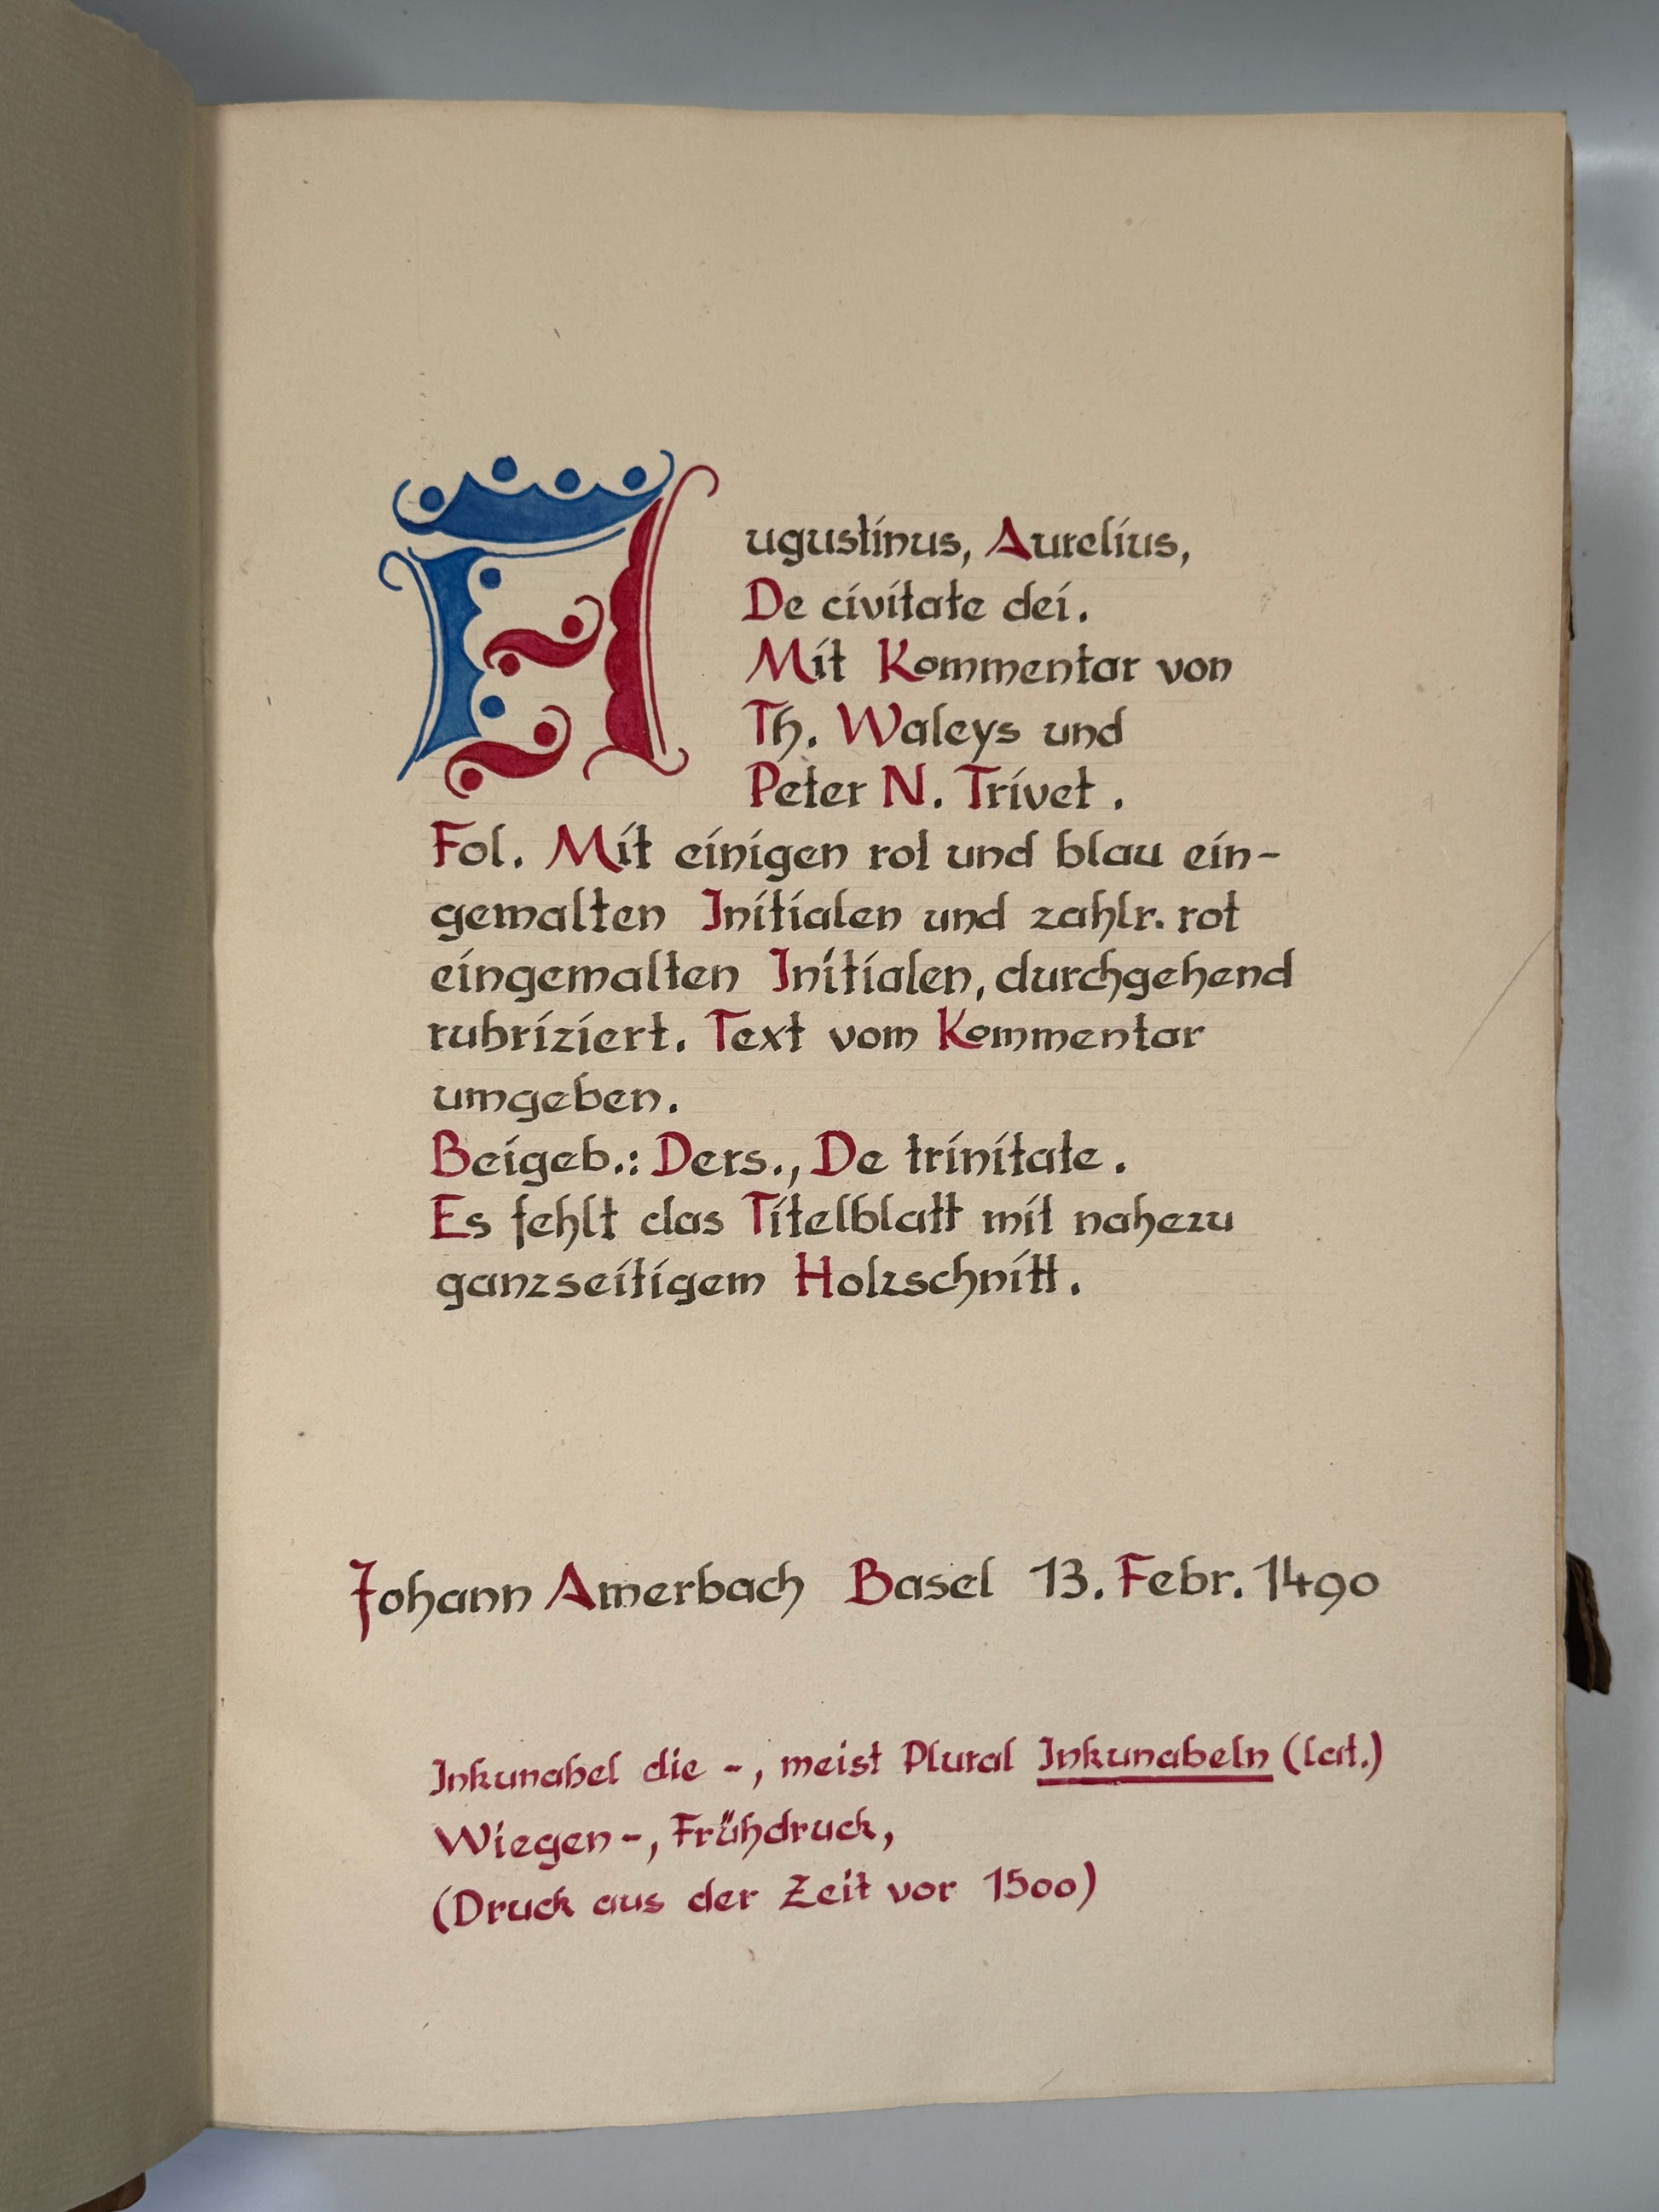 Augustinus, Aurelius,
De civitate dei.
Mit Kommentar von
Th. Waleys und
Peter N. Trivet.
Fol. Mit einigen rot und blau ein-
gemalten Initialen und zahlr. rot
eingemalten Initialen, durchgehend
rubriziert. Text vom Kommentar
umgeben.
Beigeb.: Ders., De trinitate.
Es fehlt das Titelblatt mit nahezu
ganzseitigem Holzschnitt.
Johann Amerbach Basel 13. Febr. 1490
Inkunabel die -, meist Plural Inkunabeln (lat.)
Wiegen-, Frühdruck,
(Druck aus der Zeit vor 1500)